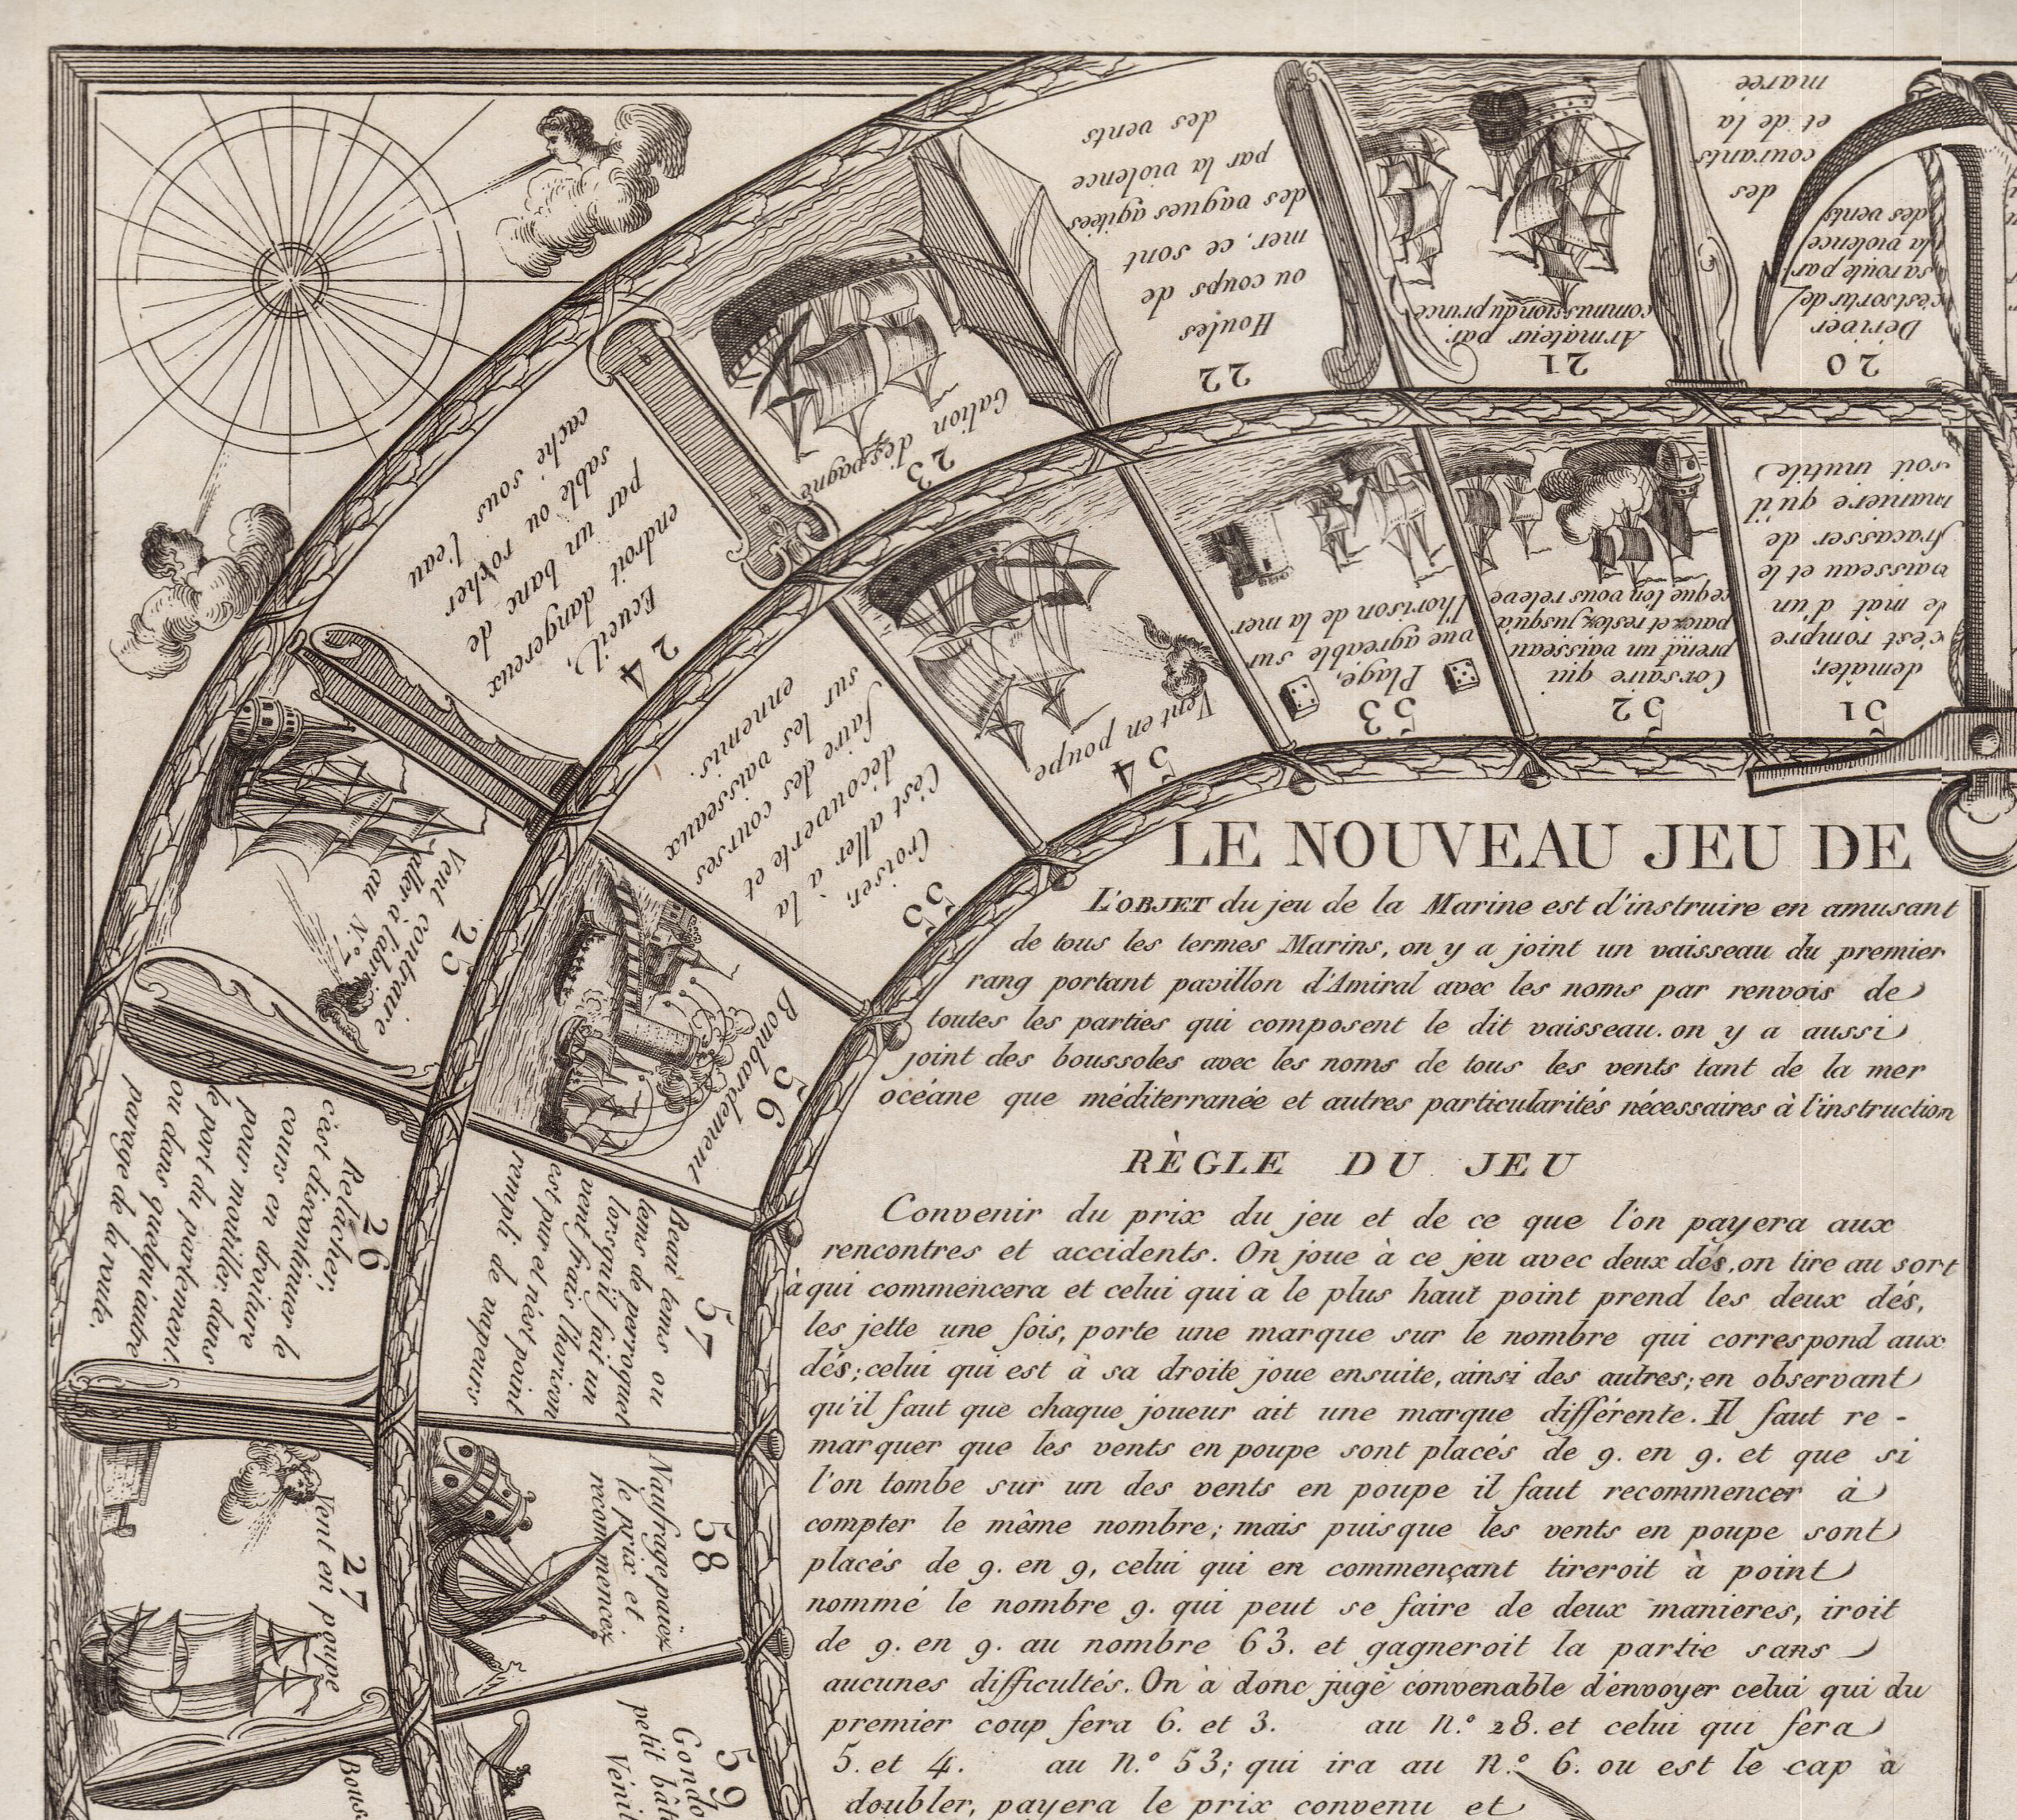 LE NOUVEAU JEU DE
L'OBJET du jeu de la Marine est d'instruire en amusant
de tous les termes Marins, on y a joint un vaisseau du premier
rang portant pavillon d'Amiral avec les noms par renvois de
toutes les parties qui composent le dit vaisseau. on y a aussi
joint des boussoles avec les noms de tous les vents tant de la mer
océane que méditerranée et autres particularités nécessaires à l'instruction
RÈGLE DU JEU
Convenir du prix du jeu et de ce que l'on payera aux
rencontres et accidents. On joue à ce jeu avec deux dés, on tire au sort
à qui commencera et celui qui a le plus haut point prend les deux dés,
les jette une fois, porte une marque sur le nombre qui correspond aux
dés; celui qui est à sa droite joue ensuite, ainsi des autres; en observant
qu'il faut que chaque joueur ait une marque différente. Il faut re-
marquer que les vents en poupe sont placés de 9. en 9. et que si
l'on tombe sur un des vents en poupe il faut recommencer à
compter le même nombre; mais puisque les vents en poupe sont
placés de 9. en 9, celui qui en commençant tireroit à point
nommé le nombre 9. qui peut se faire de deux manieres, iroit
de 9. en 9. au nombre 63. et gagneroit la partie sans
aucunes difficultés. On à donc jugé convenable d'envoyer celui qui du
premier coup fera 6. et 3. au N.º 28. et celui qui fera
5. et 4. au n.º 53; qui ira au n.º 6. ou est le cap à
doubler, payera le prix convenu et
20
Dériver
c'est sortir de
sa route par
la violence
des vents
des
courants
et de la
marée
21
Armateur par
commission du prince
22
Houles
ou coups de
mer, ce sont
des vagues agitées
par la violence
des vents
23
Galion d'espagne
24
Ecueil,
endroit dangereux
par un banc de
sable ou rocher
caché sous l'eau
25
Vent contraire
aller à l'abri
au N.º 7
26
Relâcher,
c'est discontinuer le
cours en droiture
pour mouiller dans
le port du partement
ou dans quelqu'autre
parage de la route.
27
Vent en poupe
Bous
51
demâter,
c'est rompre
le mât d'un
vaisseau et le
fracasser de
maniere qu'il
soit inutile
52
Corsaire qui
prend un vaisseau
paiez et restez jusqu'à
ce que l'on vous releve
53
Plage,
vue agreable sur
l'horison de la mer
54
Vent en poupe
55
Croiser,
C'est aller à la
découverte et
faire des courses
sur les vaisseaux
ennemis.
56
Bombardement
57
Beau tems ou
tems de perroquet
lorsqu'il fait un
vent frais l'horison
est pur et n'est point
rempli de vapeurs
58
Naufrage paiez
le prix et
recommencez
59
Gondo
petit bât
Vénit